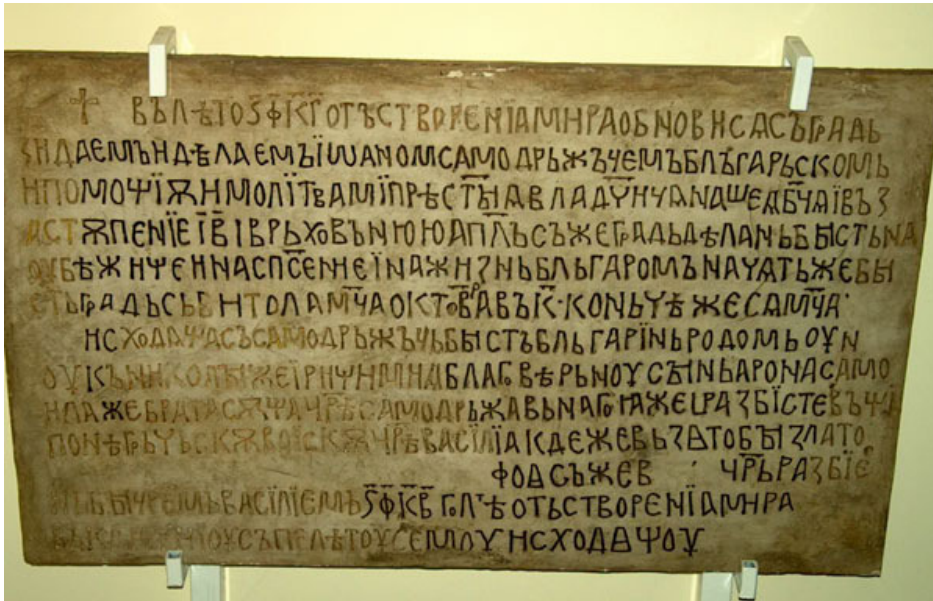 † ВЪ ЛѢТО ЅФКГ ОТЪ СТВОРЕНЇА МИРА ОБНОВИ СѦ СЪ ГРАДЬ
ЗИДАЕМЪ И ДѢЛАЕМЪ ЇѠАНОМ САМОДРЬЖЪЧЕМЪ БЛЪГАРЬСКОМЬ
И ПОМОЩЇѪ И МОЛЇТВАМЇ ПРѢСТЫѦ ВЛАДЧИЧѦ НАШЕѦ БЧѦ Ї ВЪЗ
АСТѪПЕНЇЕ ЇВ І ВРЬХОВЪНЮЮ АПЛЪ СЪ ЖЕ ГРАДЬ ДѢЛАНЬ БЫСТЬ НА
ОУБѢЖИЩЕ И НА СПСЕНИЕ Ї НА ЖИЗНЬ БЛЬГАРОМЪ НАЧѦТЬ ЖЕ БЫ
СТЬ ГРАДЬ СЬ БИТОЛѦ МЧА ОКТОВРА ВЪ К· КОНЬЧѢ ЖЕ СѦ МЧА·
ИСХОДѦЩА СЪ САМОДРЬЖЪЧЬ БЫСТЪ БЛЬГАРЇНЬ РОДОМЬ ОУН
ОУКЪ НИКОЛЫ ЖЕ Ї РИѰИМИѦ БЛАГОВѢРЬНОУ СЫНЬ АРОНА САМО
ИЛА ЖЕ БРАТА СѪЩА ЦРѢ САМОДРЬЖАВЬНАГО ꙖЖЕ І РАЗБЇСТЕ ВЪ ЩЇ
ПОНѢ ГРЬЧЬСКѪ ВОЇСКѪ ЦРѢ ВАСЇЛЇА КДЕ ЖЕ ВЬЗѦТО БЫ ЗЛАТО
ФОѦ СЪ ЖЕ В ЦРЬ РАЗБЇЕ
БЫ ЦРЕМЬ ВАСЇЛЇЕМЬ ЅФКВ Г ЛѢ ОТЬ СТВОРЕНЇА МИРА
СЪПЕ ЛѢТОУ СЕМОУ ИСХОДѦЩОУ